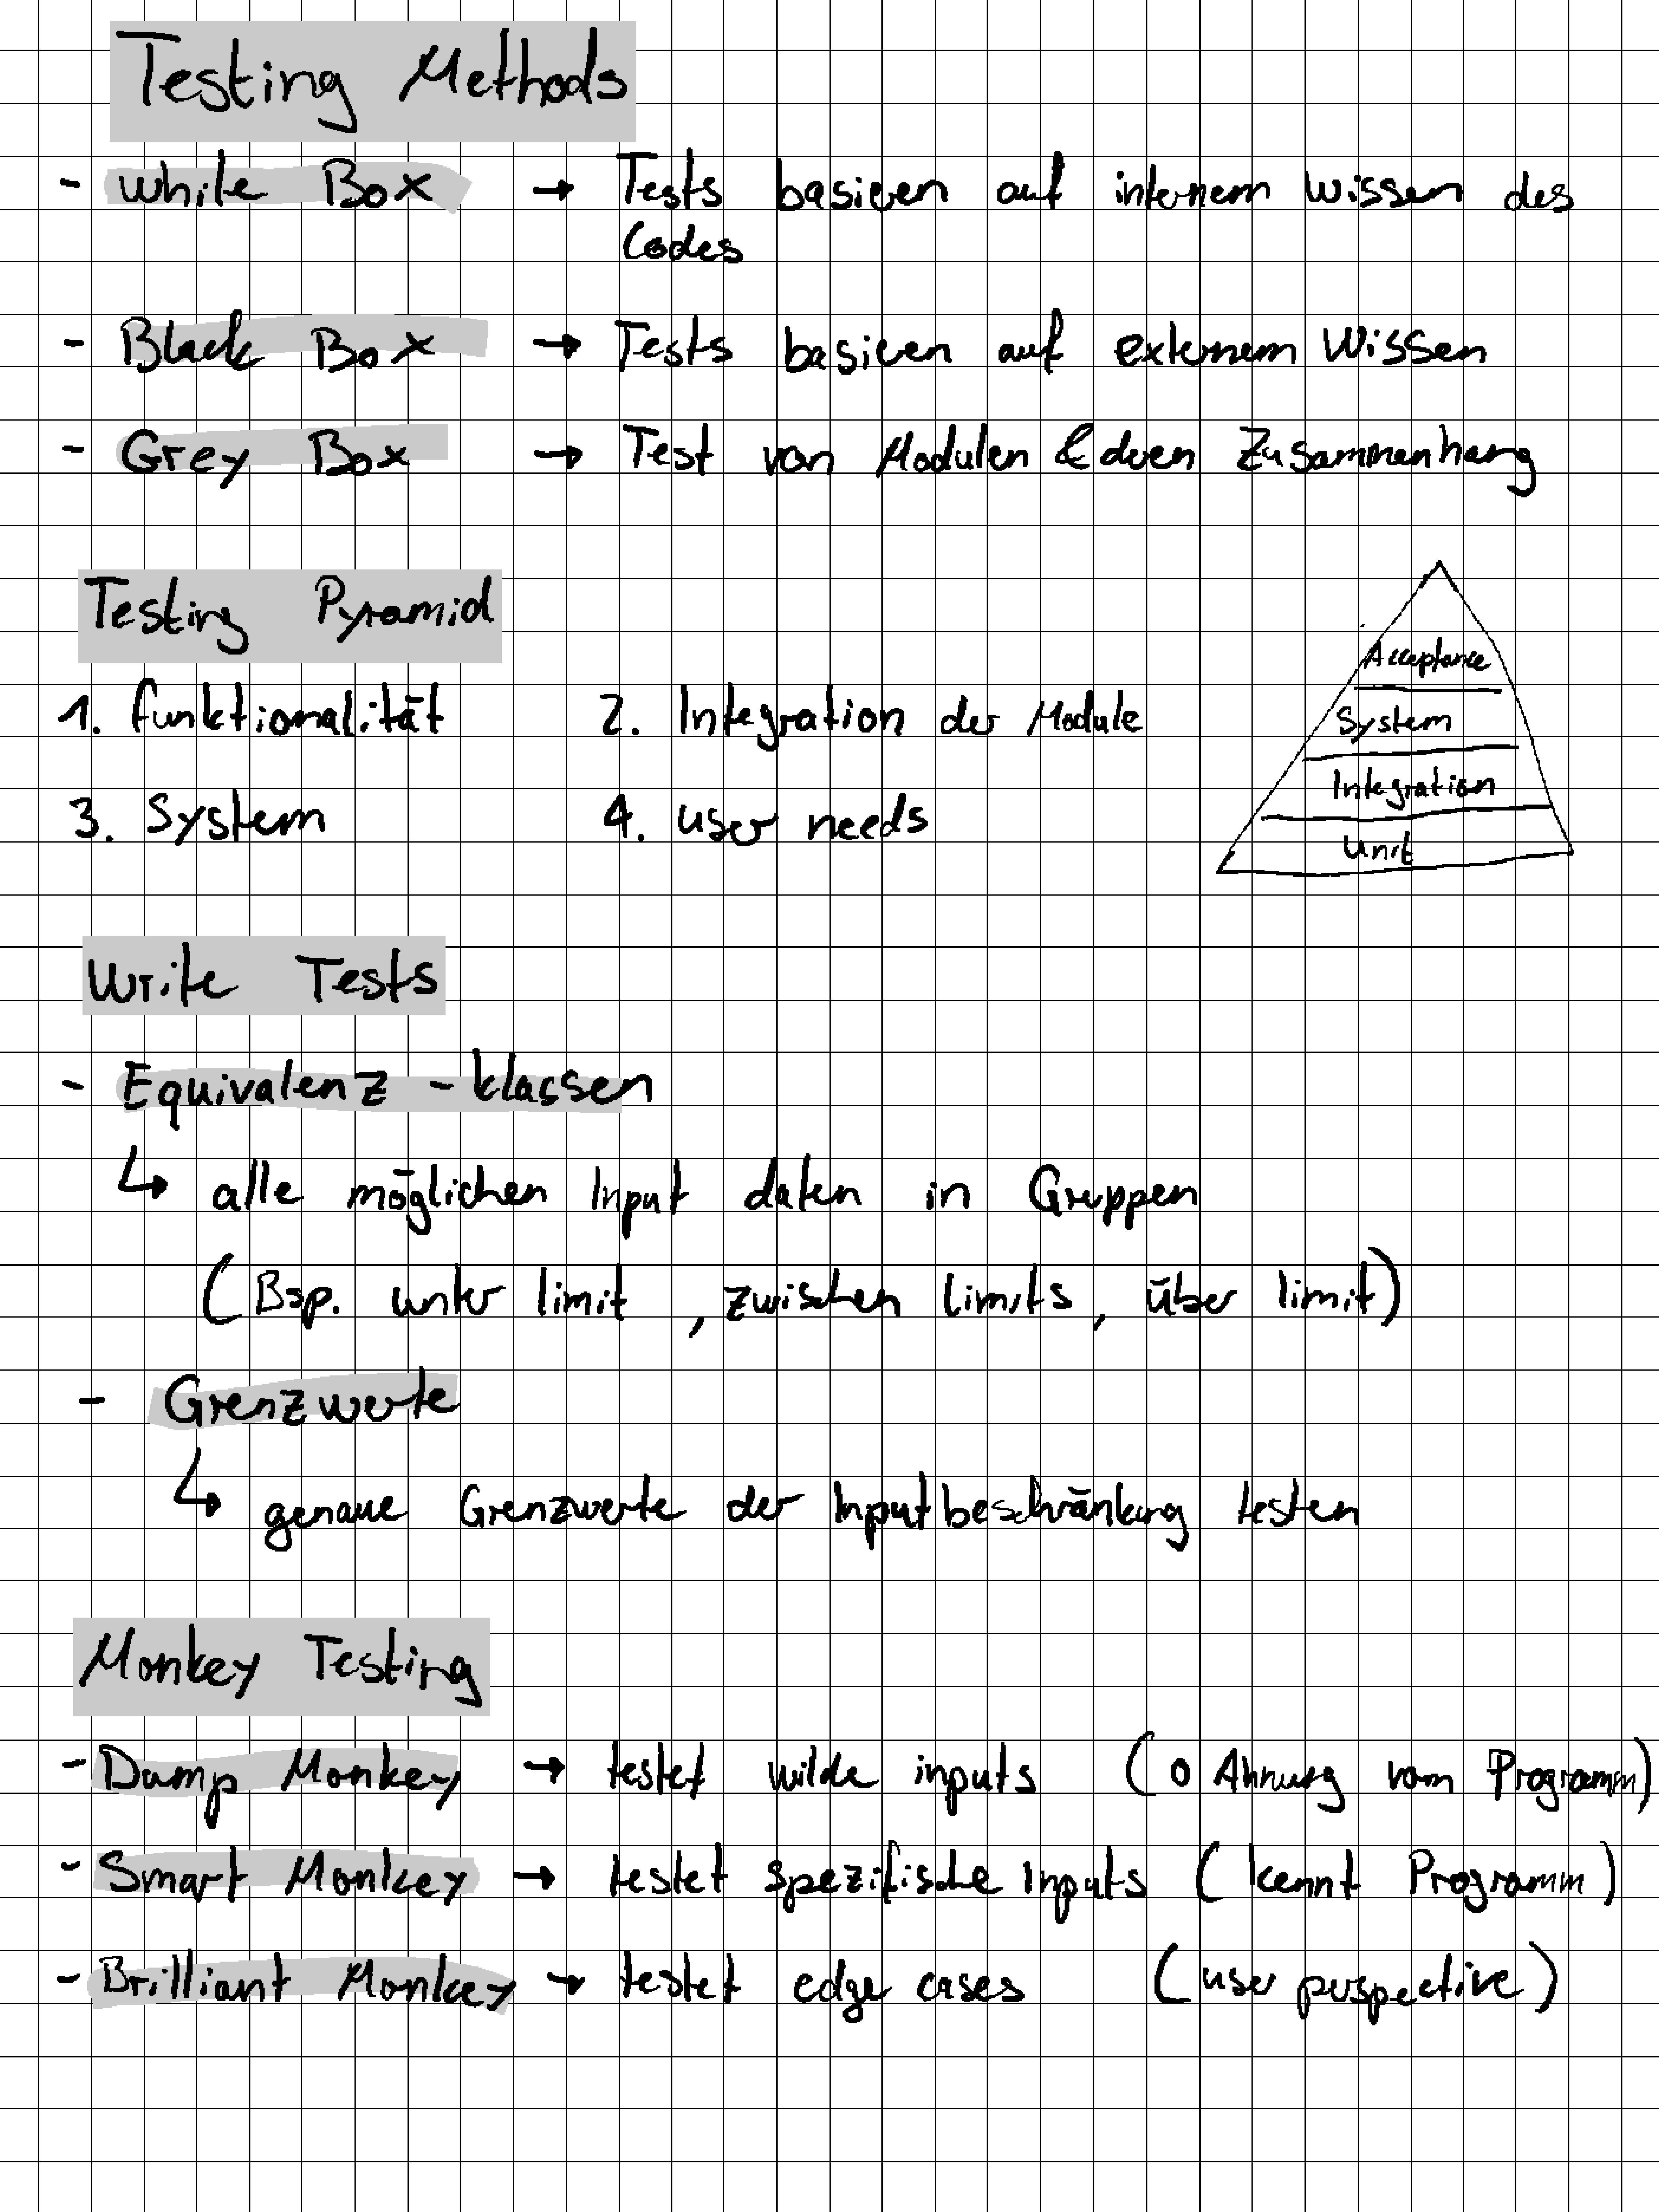 Testing Methods
- White Box → Tests basieren auf internem Wissen des
Codes
- Black Box → Tests basieren auf externem Wissen
- Grey Box → Test von Modulen & deren Zusammenhang
Testing Pyramid
1. Funktionalität 2. Integration der Module
3. System 4. user needs
Acceptance
System
Integration
Unit
Write Tests
- Equivalenz - klassen
↳ alle möglichen Input daten in Gruppen
(Bsp. unter limit , zwischen limits , über limit)
- Grenzwerte
↳ genaue Grenzwerte der Inputbeschränkung testen
Monkey Testing
- Dump Monkey → testet wilde inputs (0 Ahnung vom Programm)
- Smart Monkey → testet spezifische Inputs (kennt Programm)
- Brilliant Monkey → testet edge cases (user perspective)